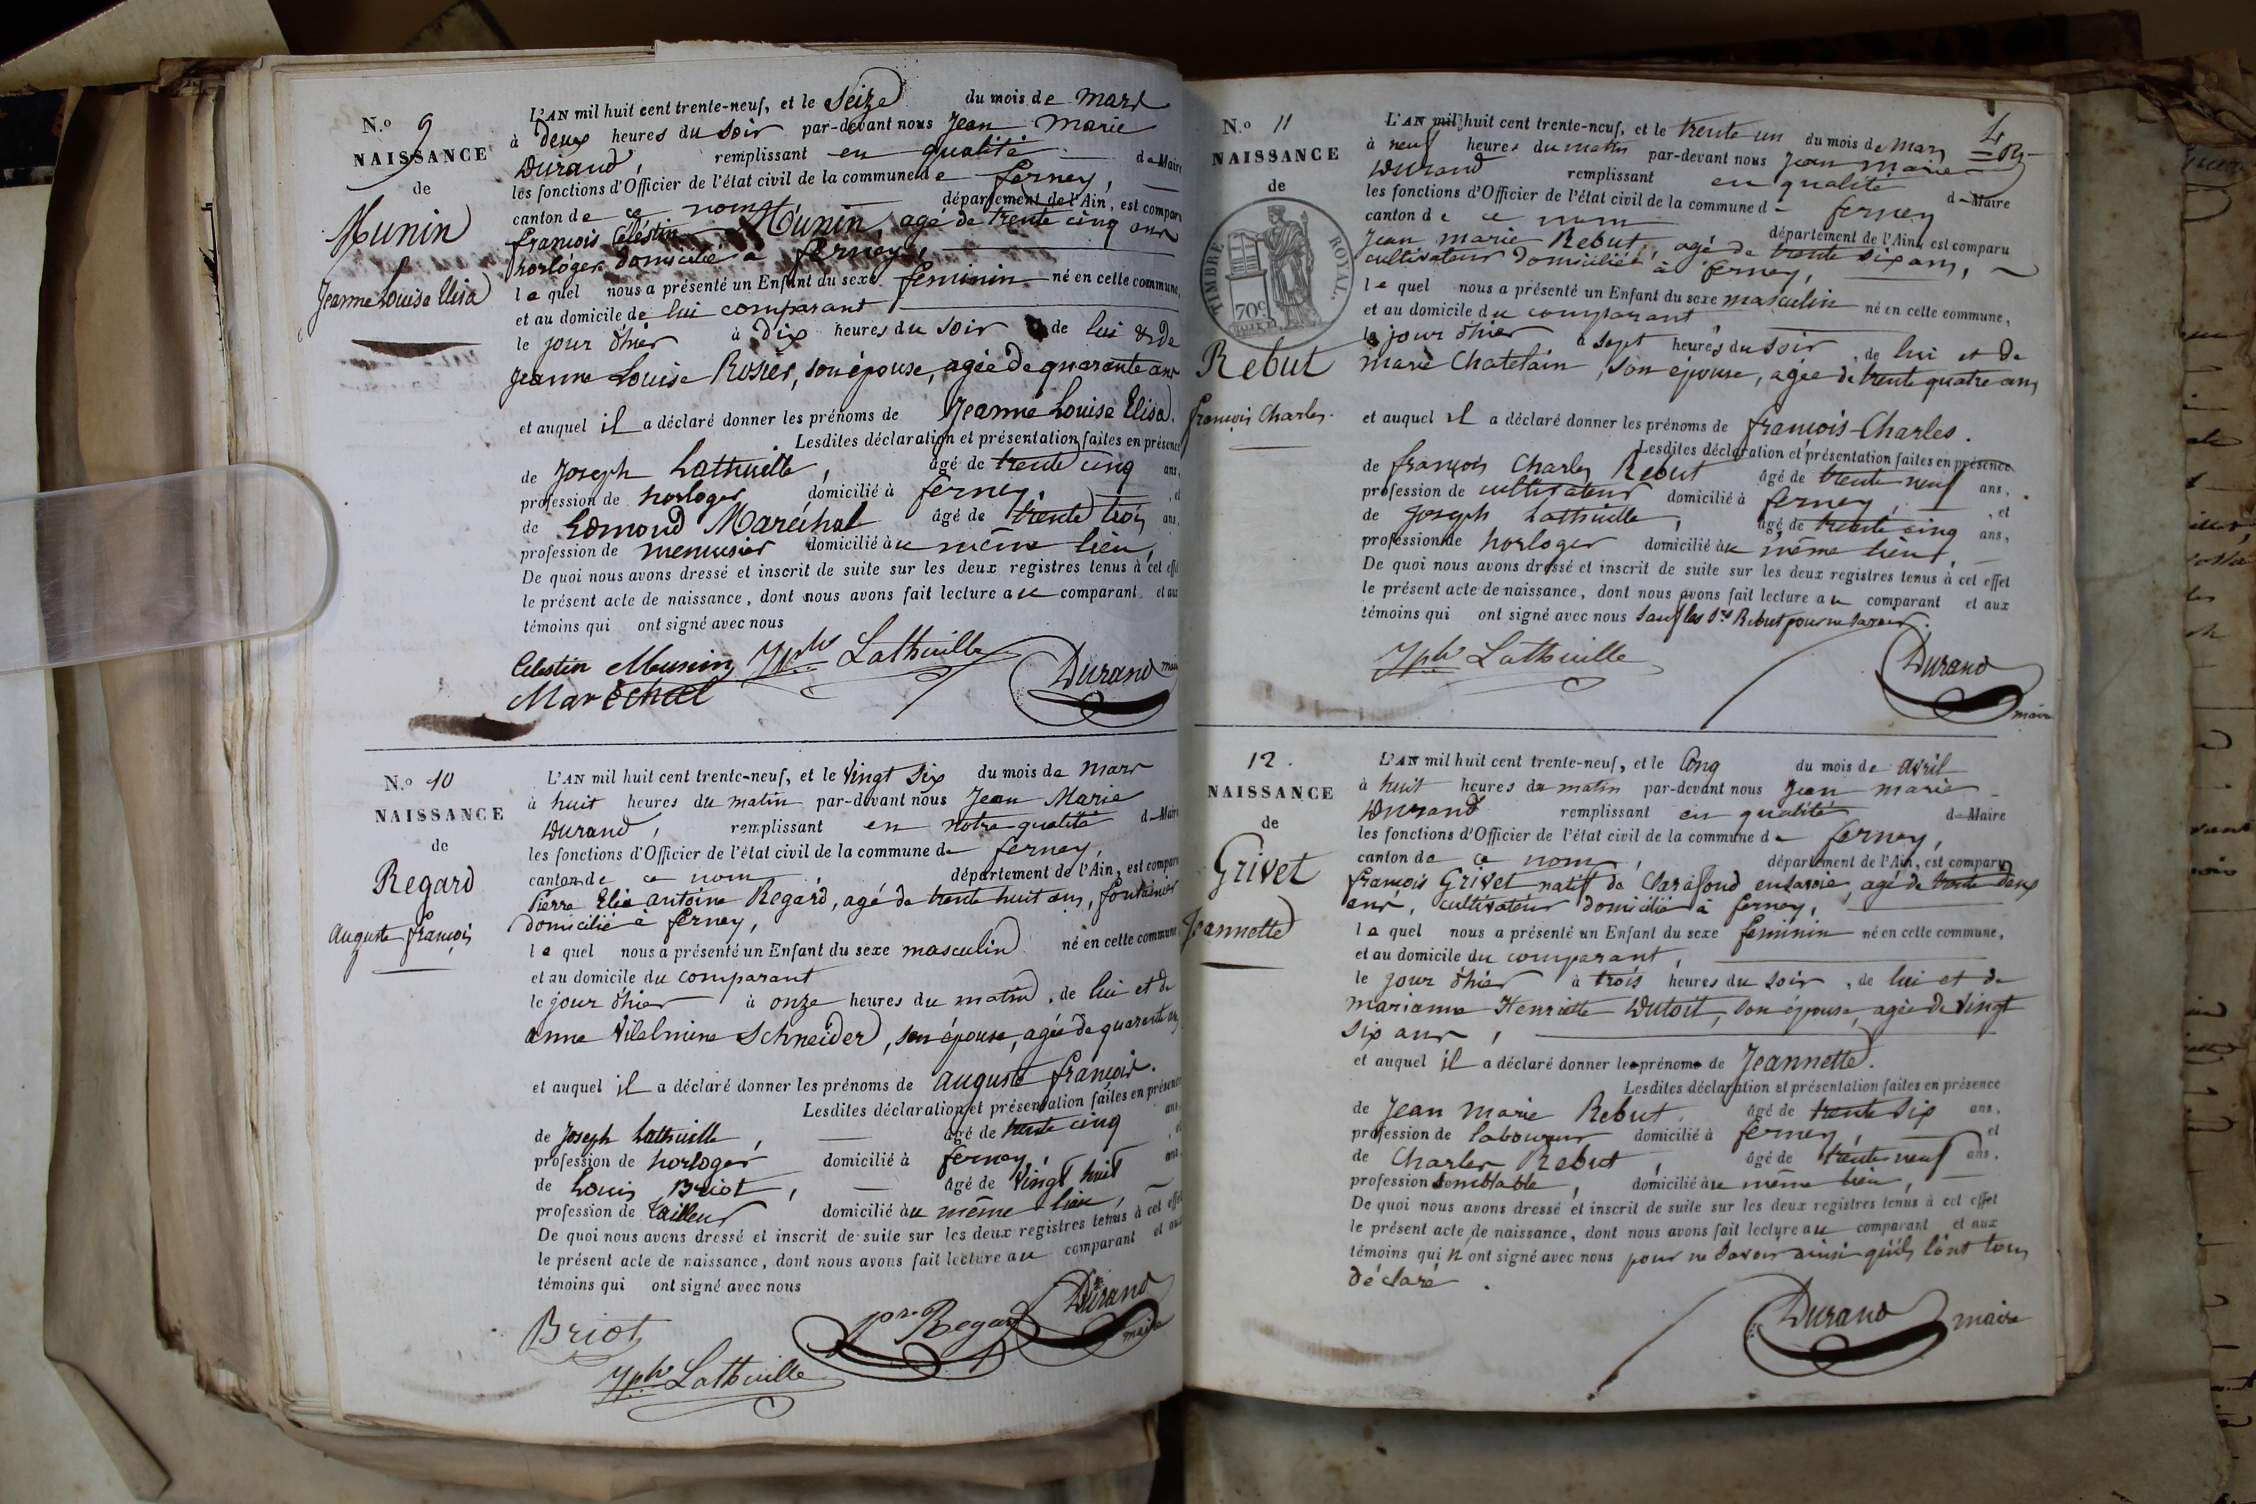 N.o 9
NAISSANCE
de
Munin
Jeanne Louise Elisa
L'AN mil huit cent trente-neuf, et le Seize du mois de mars
à deux heures du soir par-devant nous Jean Marie
Durand, remplissant en qualité de Maire
les fonctions d'Officier de l'état civil de la commune de ferney,
canton de ce nom département de l'Ain, est comparu
françois Célestin Munin, agé de trente cinq ans
horloger domicilié à ferney,
lequel nous a présenté un Enfant du sexe feminin né en cette commune,
et au domicile de lui comparant
le jour d'hier à dix heures du soir de lui & de
Jeanne Louise Rosier, son épouse, agée de quarante ans
et auquel il a déclaré donner les prénoms de Jeanne Louise Elisa.
Lesdites déclaration et présentation faites en présence
de Joseph Lathuille, âgé de trente cinq ans,
profession de horloger domicilié à ferney, et
de Edmond Maréchal âgé de trente trois ans,
profession de menuisier domicilié au même lieu,
De quoi nous avons dressé et inscrit de suite sur les deux registres tenus à cet effet
le présent acte de naissance, dont nous avons fait lecture au comparant et aux
témoins qui ont signé avec nous
Celestin Munin Jph Lathuille Durand maire
Maréchal
N.o 10
NAISSANCE
de
Regard
auguste françois
L'AN mil huit cent trente-neuf, et le vingt six du mois de mars
à huit heures du matin par-devant nous Jean Marie
Durand, remplissant en notre qualité de Maire
les fonctions d'Officier de l'état civil de la commune de ferney,
canton de ce nom département de l'Ain, est comparu
Pierre Elie antoine Regard, agé de trente huit ans, fontainier
domicilié à ferney,
lequel nous a présenté un Enfant du sexe masculin né en cette commune
et au domicile du comparant
le jour d'hier à onze heures du matin, de lui et de
anne Vilelmine Schneider, son épouse, agée de quarante ans
et auquel il a déclaré donner les prénoms de auguste françois.
Lesdites déclaration et présentation faites en présence
de Joseph Lathuille, âgé de trente cinq ans,
profession de horloger domicilié à ferney, et
de Louis Briot, âgé de vingt huit ans,
profession de tailleur domicilié au même lieu,
De quoi nous avons dressé et inscrit de suite sur les deux registres tenus à cet effet
le présent acte de naissance, dont nous avons fait lecture au comparant et aux
témoins qui ont signé avec nous
Briot Regard Durand maire
Jph Lathuille
N.o 11
NAISSANCE
de
TIMBRE ROYAL.
70c.
Rebut
françois Charles.
L'AN mil huit cent trente-neuf, et le trente un du mois de mars
à neuf heures du matin par-devant nous Jean marie
Durand remplissant en qualité de Maire
les fonctions d'Officier de l'état civil de la commune d ferney
canton de ce nom département de l'Ain, est comparu
Jean marie Rebut, agé de trente six ans,
cultivateur domicilié à ferney,
lequel nous a présenté un Enfant du sexe masculin né en cette commune,
et au domicile du comparant
le jour d'hier à sept heures du soir, de lui et de
marie Chatelain, son épouse, agée de trente quatre ans
et auquel il a déclaré donner les prénoms de françois-Charles.
Lesdites déclaration et présentation faites en présence
de françois Charles Rebut âgé de trente neuf ans,
profession de cultivateur domicilié à ferney, et
de Joseph Lathuille, âgé de trente cinq ans,
profession de horloger domicilié au même lieu,
De quoi nous avons dressé et inscrit de suite sur les deux registres tenus à cet effet
le présent acte de naissance, dont nous avons fait lecture au comparant et aux
témoins qui ont signé avec nous sauf les Srs Rebut pour ne savoir.
Jph Lathuille Durand
maire
12.
NAISSANCE
de
Grivet
Jeannette
L'AN mil huit cent trente-neuf, et le cinq du mois de avril
à huit heures du matin par-devant nous Jean marie
Durand remplissant en qualité de Maire
les fonctions d'Officier de l'état civil de la commune de ferney,
canton de ce nom, département de l'Ain, est comparu
françois Grivet natif de Clarafond en Savoie, agé de trente deux
ans, cultivateur domicilié à ferney,
lequel nous a présenté un Enfant du sexe feminin né en cette commune,
et au domicile du comparant,
le jour d'hier à trois heures du soir, de lui et de
marianne Henriette Dutoit, son épouse, agée de vingt
six ans,
et auquel il a déclaré donner le prénom de Jeannette.
Lesdites déclaration et présentation faites en présence
de Jean marie Rebut âgé de trente six ans,
profession de laboureur domicilié à ferney, et
de Charles Rebut, âgé de trente neuf ans,
profession semblable, domicilié au même lieu,
De quoi nous avons dressé et inscrit de suite sur les deux registres tenus à cet effet
le présent acte de naissance, dont nous avons fait lecture au comparant et aux
témoins qui n ont signé avec nous pour ne savoir ainsi qu'ils l'ont tous
déclaré.
Durand maire